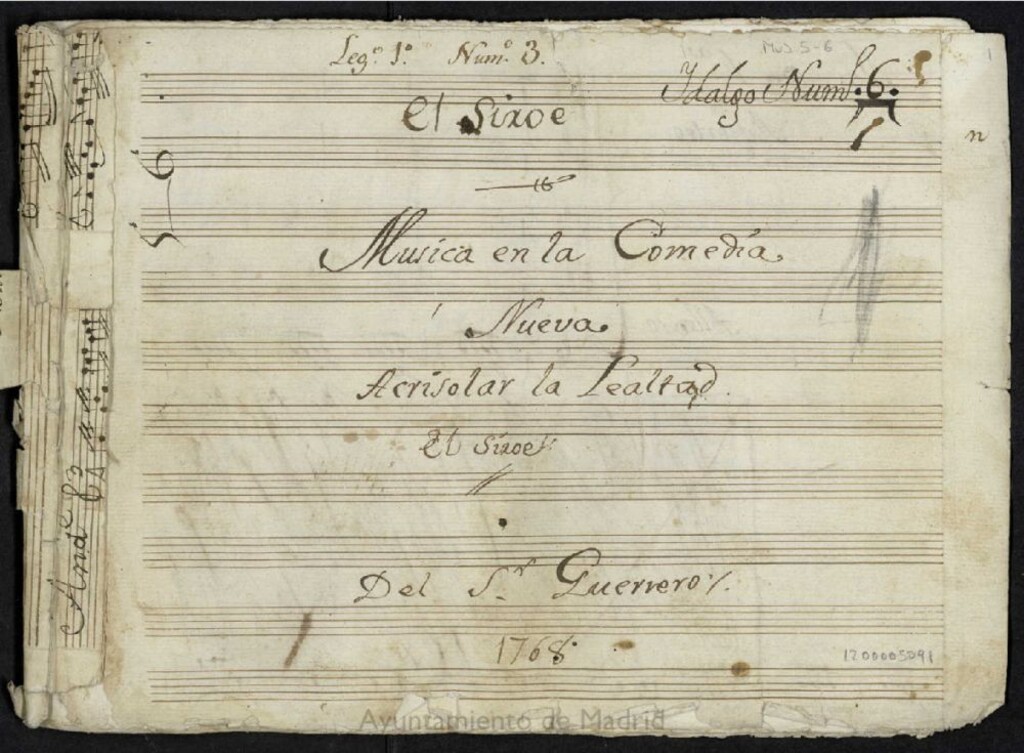 Leg.º 1.º Num.º 3.
Mus 5-6
1
Ydalgo Num.º 6.
El Siroe
n
16
Musica en la Comedia
Nueva
Acrisolar la Lealtad.
El Siroe
Del S.r Guerrero
1768
And.e
1200005091
Ayuntamiento de Madrid